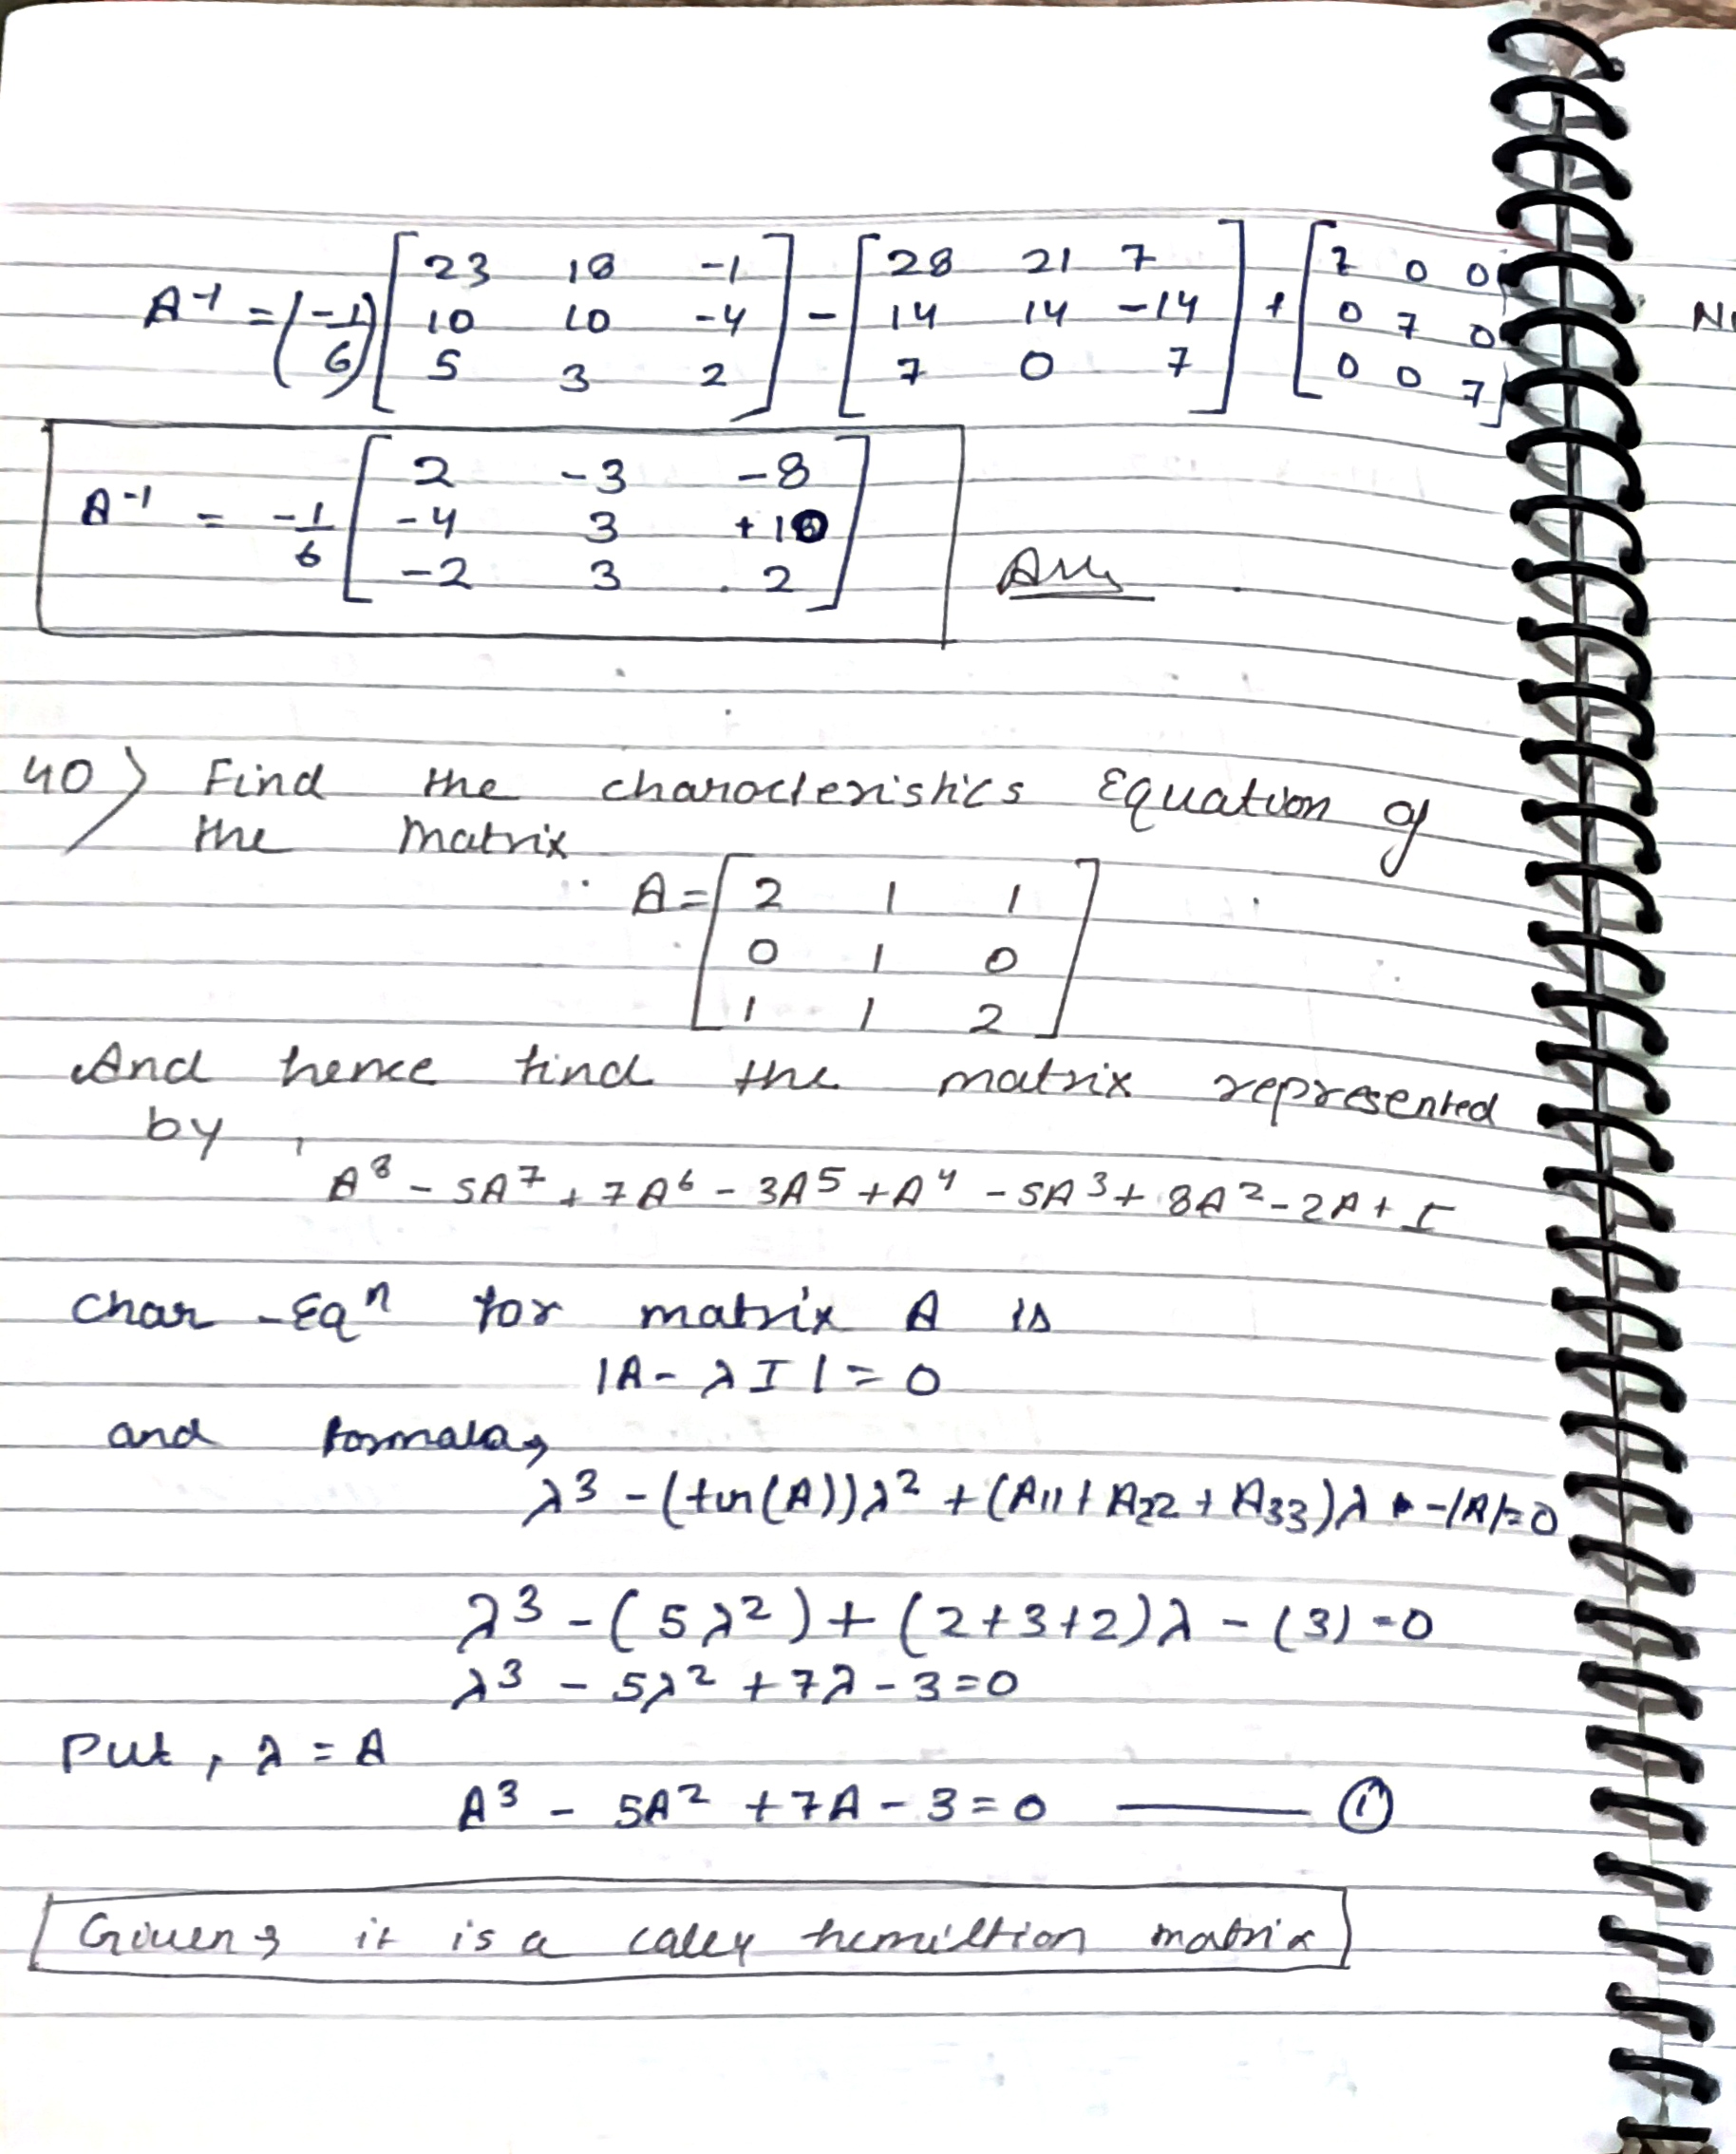 A⁻¹ = (-1/6) [23 18 -1; 10 10 -4; 5 3 2] - [28 21 7; 14 14 -14; 7 0 7] + [7 0 0; 0 7 0; 0 0 7]
A⁻¹ = -1/6 [2 -3 -8; -4 3 +10; -2 3 2] Ans
40) Find the charocteristics Equation of
the Matrix
A = [2 1 1; 0 1 0; 1 1 2]
And hence find the matrix represented
by,
A⁸ - 5A⁷ + 7A⁶ - 3A⁵ + A⁴ - 5A³ + 8A² - 2A + I
Char - Eqⁿ for matrix A is
|A - λI| = 0
and formala,
λ³ - (tr(A))λ² + (A11 + A22 + A33)λ - |A| = 0
λ³ - (5λ²) + (2+3+2)λ - (3) = 0
λ³ - 5λ² + 7λ - 3 = 0
Put, λ = A
A³ - 5A² + 7A - 3 = 0 —— ①
Given, it is a caley hemiltion matrix